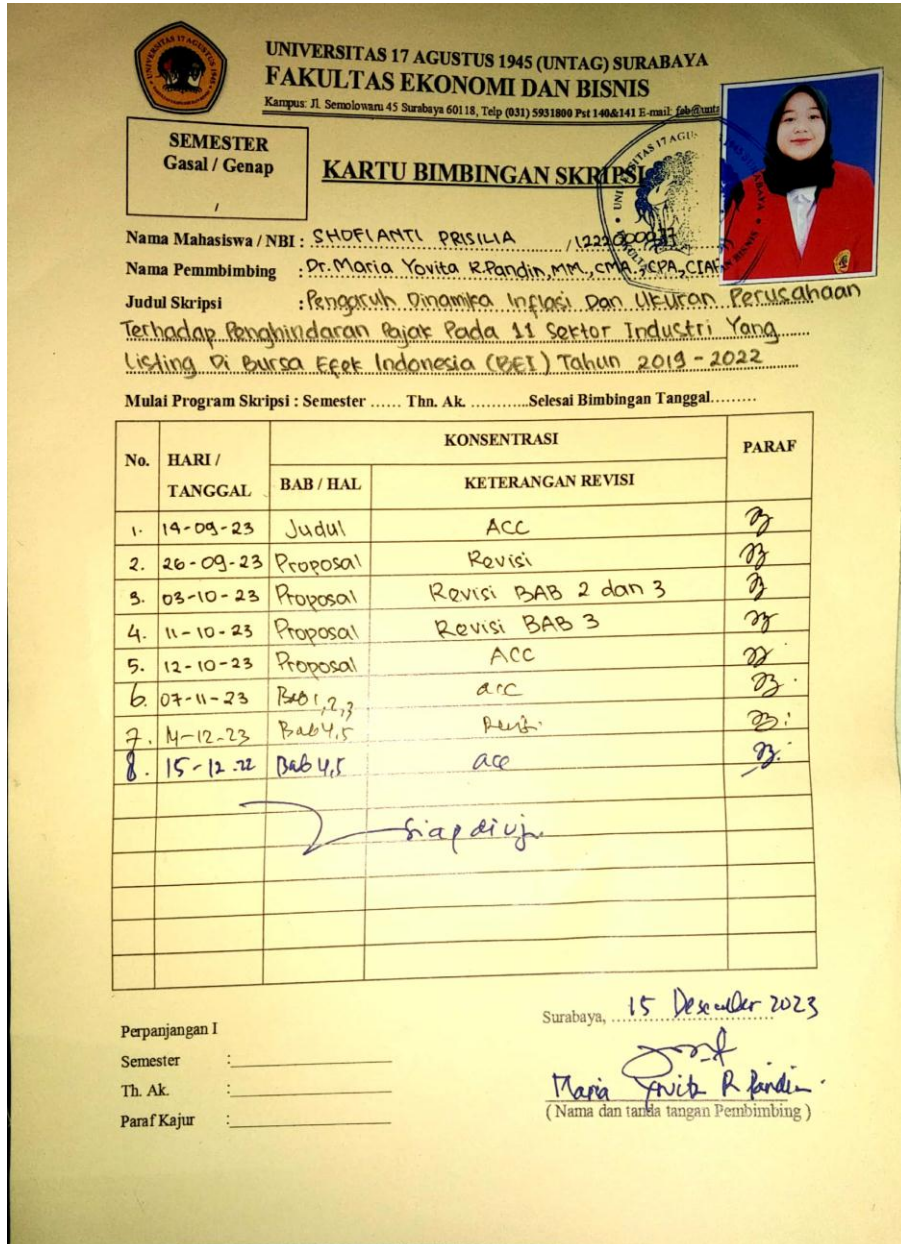 UNIVERSITAS 17 AGUSTUS 1945 (UNTAG) SURABAYA
FAKULTAS EKONOMI DAN BISNIS
Kampus: Jl. Semolowaru 45 Surabaya 60118, Telp (031) 5931800 Pst 140&141 E-mail: feb@unta
SEMESTER
Gasal / Genap
/
KARTU BIMBINGAN SKRIPSI
Nama Mahasiswa / NBI : SHOFIANTI PRISILIA /
Nama Pemmbimbing : Dr. Maria Yovita R.Pandin, MM., CMA.,CPA.,
Judul Skripsi : Pengaruh Dinamika Inflasi Dan Ukuran Perusahaan
Terhadap Penghindaran Pajak Pada 11 Sektor Industri Yang
Listing Di Bursa Efek Indonesia (BEI) Tahun 2019 - 2022
Mulai Program Skripsi : Semester ...... Thn. Ak. ............Selesai Bimbingan Tanggal.........
No. HARI / TANGGAL KONSENTRASI PARAF
BAB / HAL KETERANGAN REVISI
1. 19-09-23 Judul ACC
2. 26-09-23 Proposal Revisi
3. 03-10-23 Proposal Revisi BAB 2 dan 3
4. 11-10-23 Proposal Revisi BAB 3
5. 12-10-23 Proposal ACC
6. 07-11-23 Bab 1,2,3 acc
7. 14-12-23 Bab 4,5 Revisi
8. 15-12-22 Bab 4,5 acc
Siap diuji
Perpanjangan I
Semester :
Th. Ak. :
Paraf Kajur :
Surabaya, 15 Desember 2023
Maria Yovita R Pandin
( Nama dan tanda tangan Pembimbing )